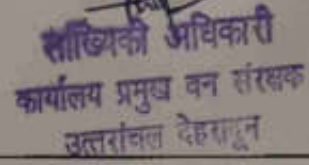 सांख्यिकी अधिकारी
कार्यालय प्रमुख वन संरक्षक
उत्तरांचल देहरादून